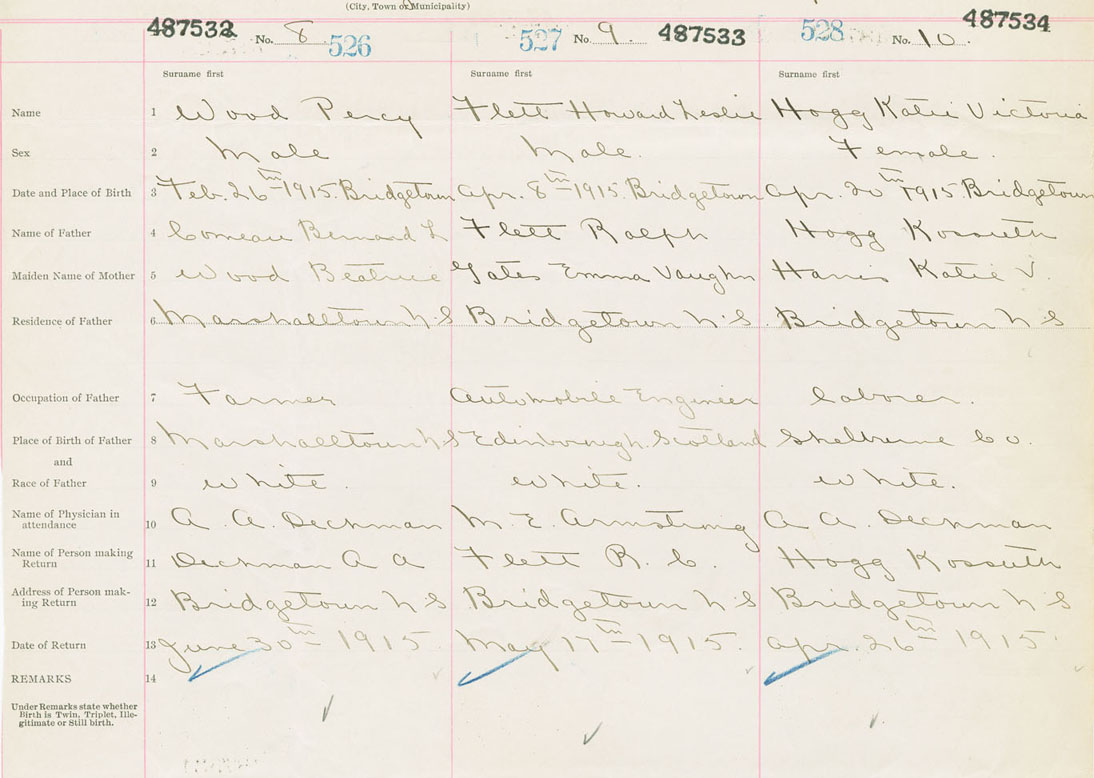 (City, Town or Municipality)
487532 No. 8 526 527 No. 9 487533 528 No. 10. 487534
Surname first Surname first Surname first
Name 1 Wood Percy Flett Howard Leslie Hogg Katie Victoria
Sex 2 Male Male. Female.
Date and Place of Birth 3 Feb. 26th 1915. Bridgetown Apr. 8th 1915. Bridgetown Apr. 20th 1915. Bridgetown
Name of Father 4 Comeau Bernard L Flett Ralph Hogg Kossuth
Maiden Name of Mother 5 Wood Beatrice Gates Emma Vaughn Harris Katie V.
Residence of Father 6 Marshalltown N.S Bridgetown N.S. Bridgetown N S
Occupation of Father 7 Farmer Automobile Engineer Laborer.
Place of Birth of Father 8 Marshalltown N S Edinborough Scotland Shelburne Co.
and
Race of Father 9 White. White. White.
Name of Physician in
attendance 10 A. A. Deckman M. E. Armstrong A A. Deckman
Name of Person making
Return 11 Deckman A A Flett R. C. Hogg Kossuth
Address of Person mak-
ing Return 12 Bridgetown N S Bridgetown N.S Bridgetown N S
Date of Return 13 June 30th 1915 May 17th 1915. Apr. 26th 1915.
REMARKS 14
Under Remarks state whether
Birth is Twin, Triplet, Ille-
gitimate or Still birth.